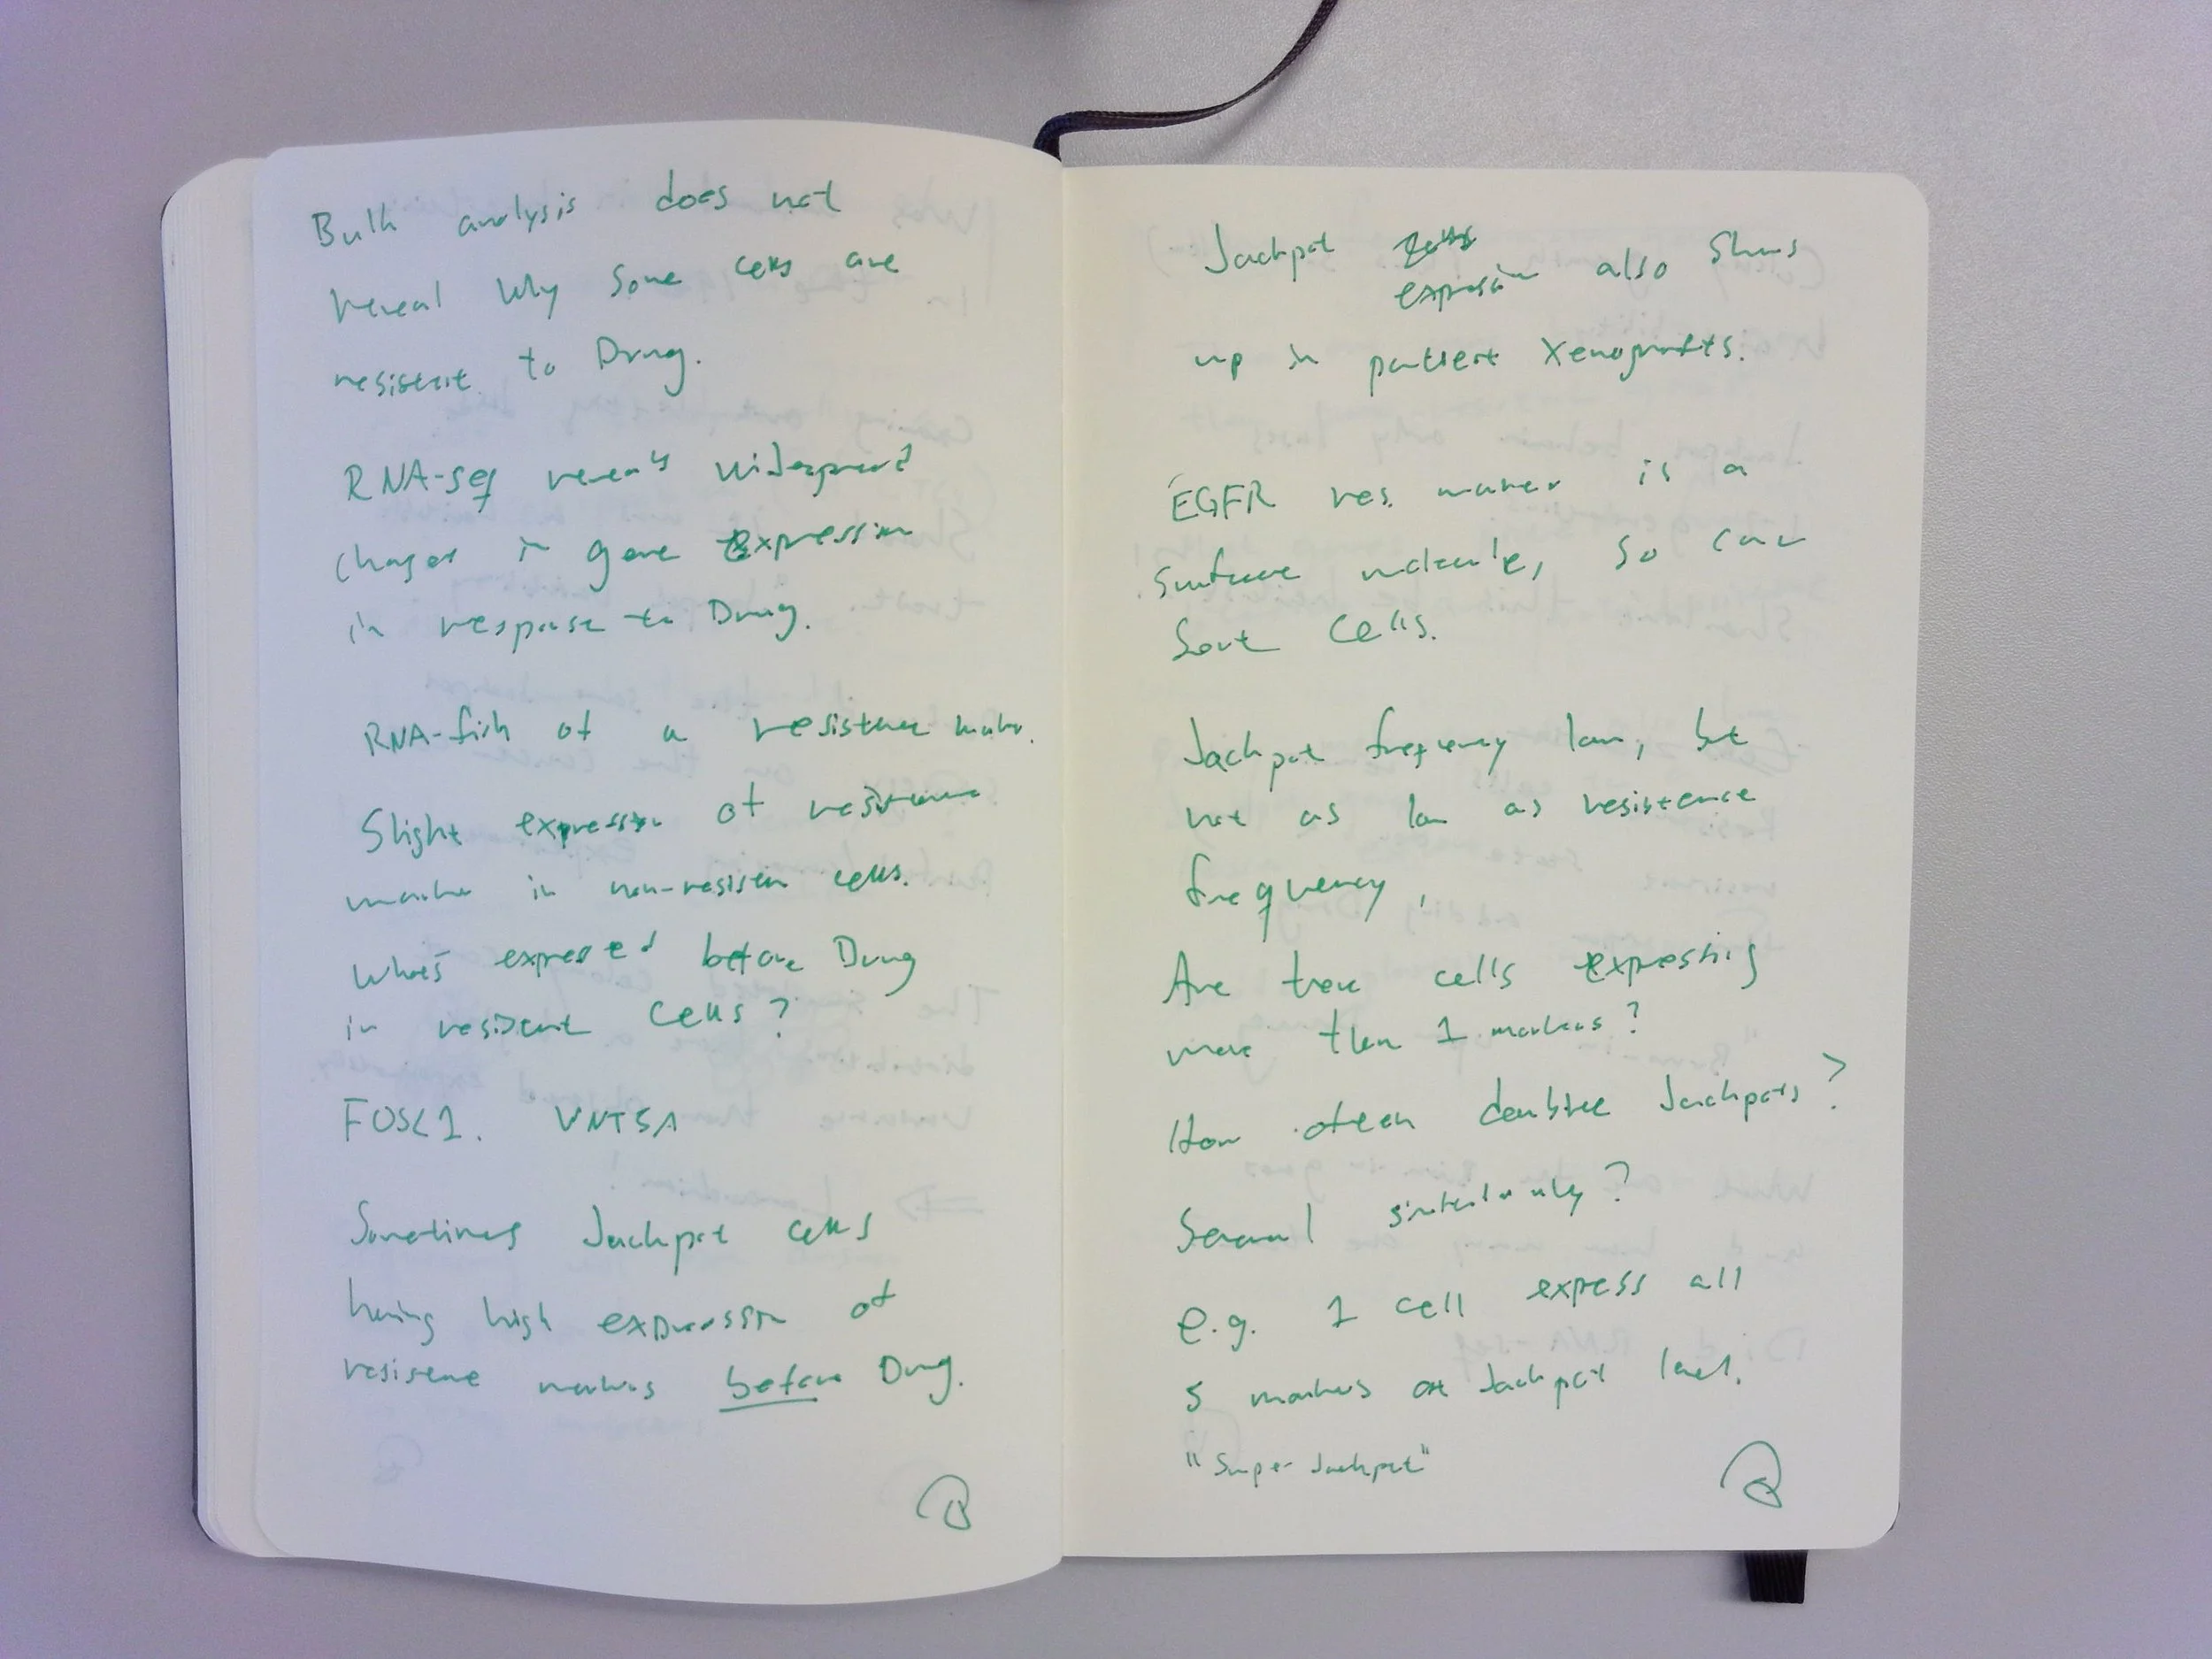 Bulk analysis does not
reveal why some cells are
resistent to Drug.
RNA-seq reveals widespread
changes in gene expression
in response to Drug.
RNA-fish of a resistence marker.
Slight expression of resistence
marker in non-resisten cells.
Whats expressed before Drug
in resistent cells?
FOSL1. WNT5A
Sometimes Jackpot cells
having high expression of
resistene markers before Drug.
Jackpot cells
expression also shows
up in patient xenografts.
EGFR res. marker is a
surface molecule, so can
sort cells.
Jackpot frequency low, but
not as low as resistence
frequency.
Are there cells expressing
more then 1 markers?
How often double Jackpots?
Several simultaneously?
e.g. 1 cell express all
5 markers at Jackpot level.
"Super Jackpot"